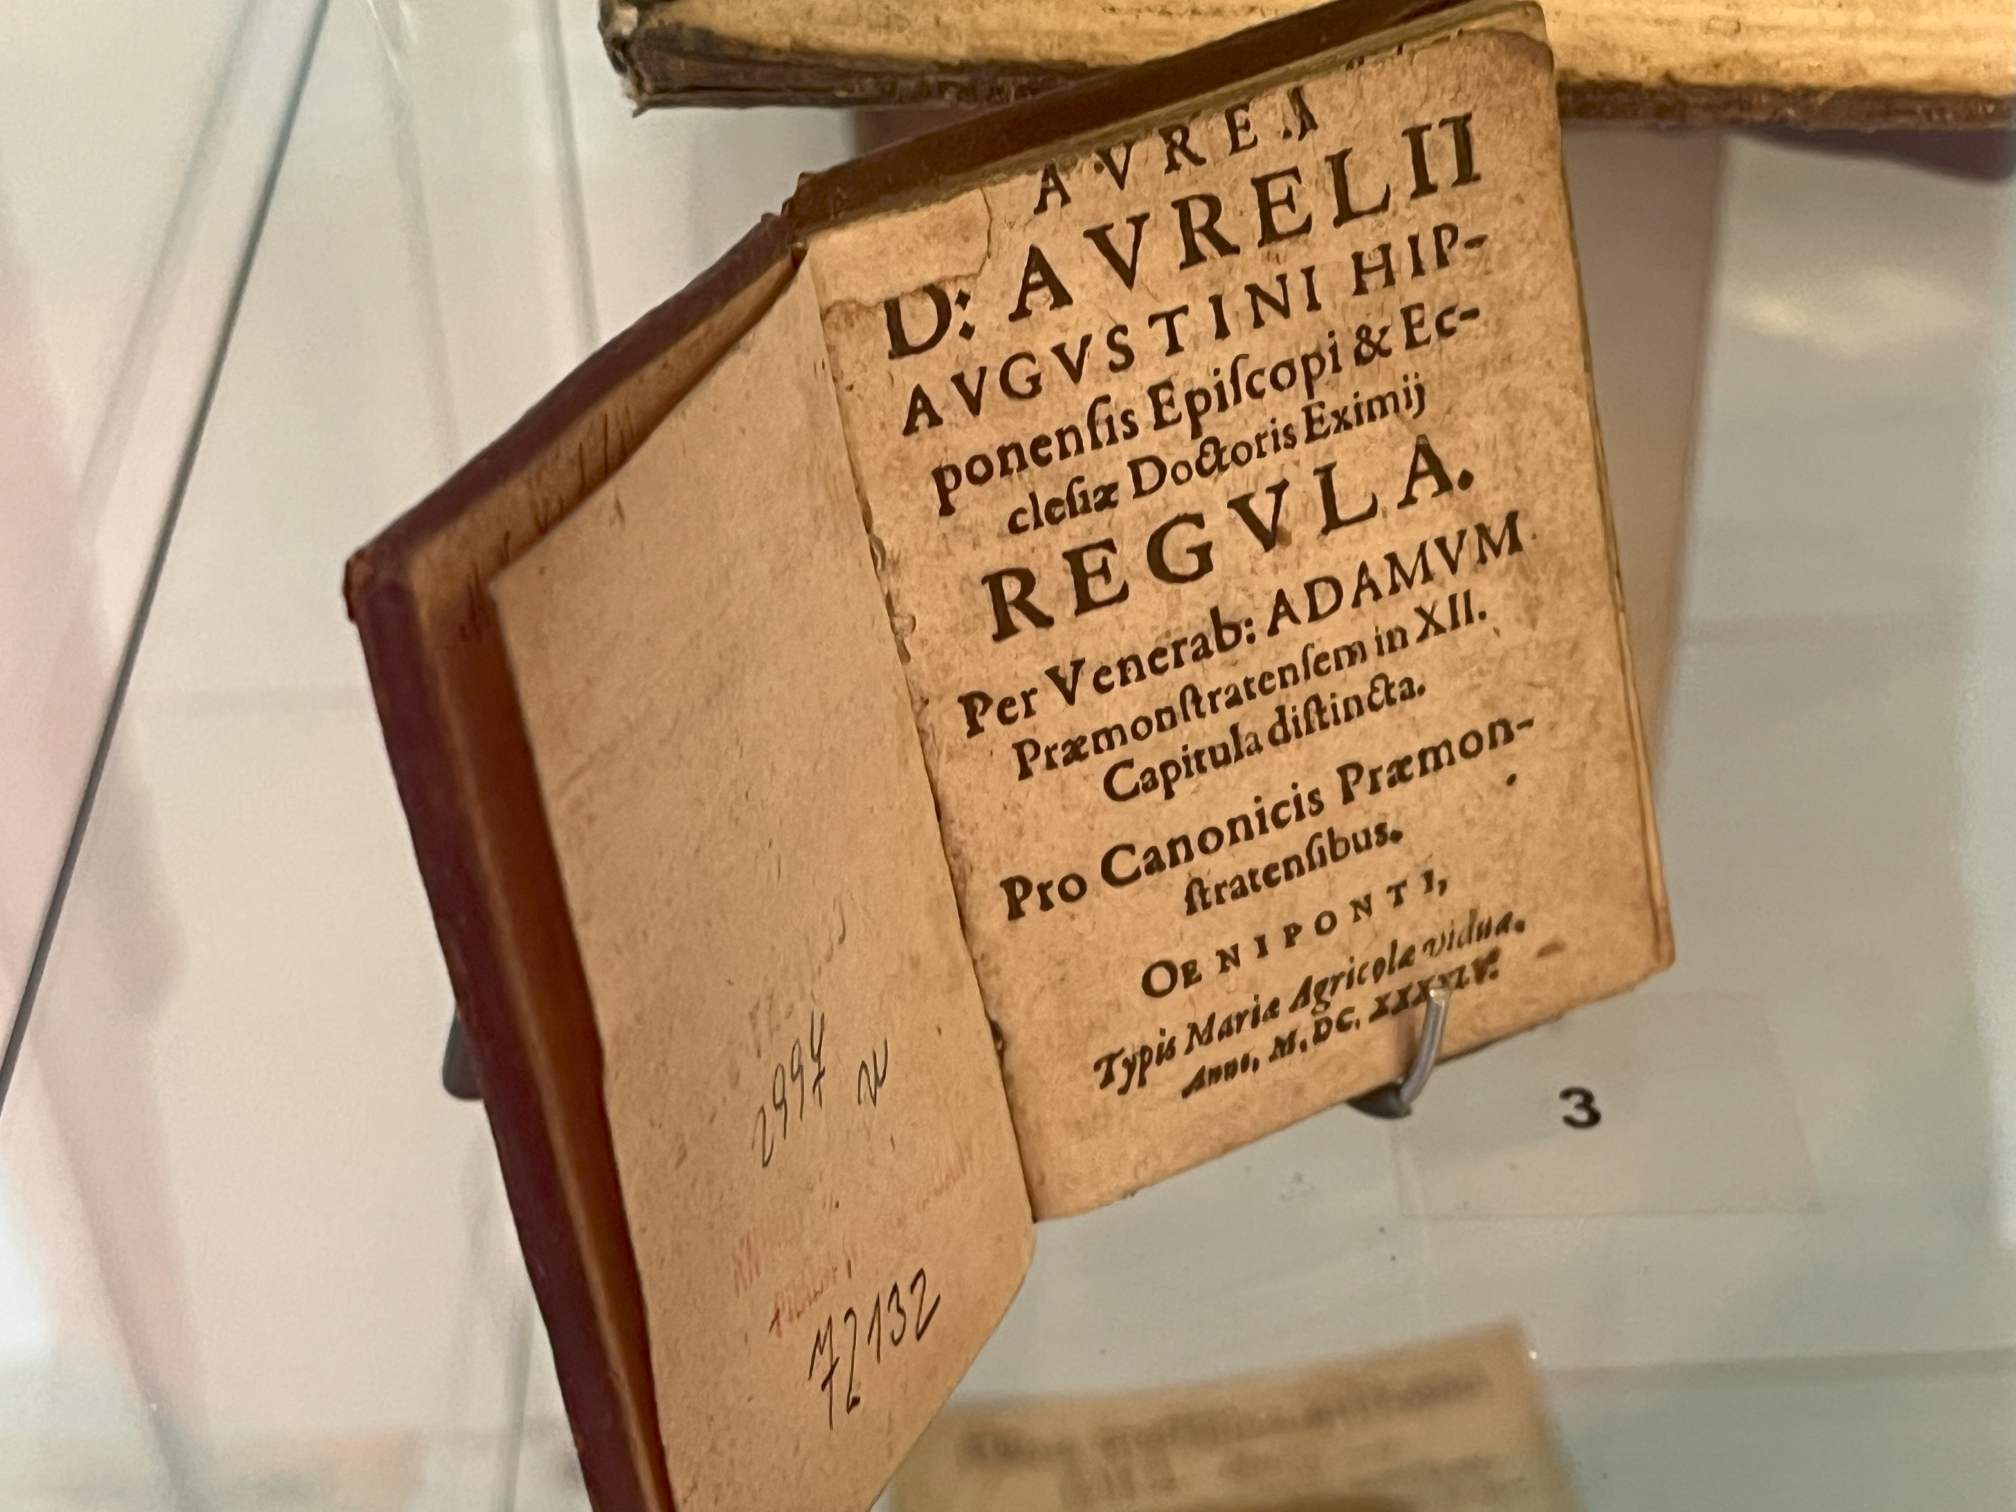 AVREA
D: AVRELII
AVGVSTINI HIP-
ponenſis Epiſcopi & Ec-
cleſiæ Doctoris Eximij
REGVLA.
Per Venerab: ADAMVM
Præmonſtratenſem in XII.
Capitula diſtincta.
Pro Canonicis Præmon-
ſtratenſibus.
OENIPONTI,
Typis Mariæ Agricolæ vidua.
Anno, M. DC.
2994
72132
3